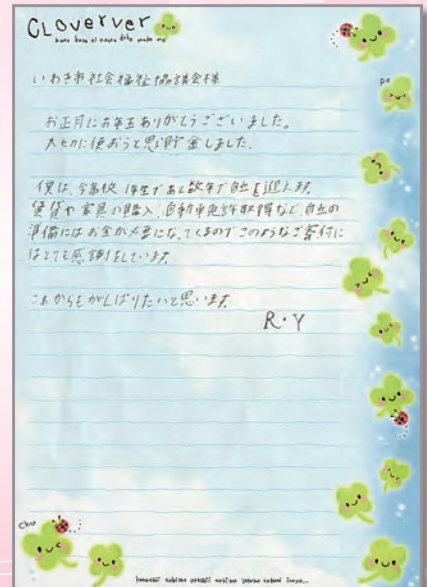 CLoverver
いわき市社会福祉協議会様
お正月にお年玉ありがとうございました。
大切に使おうと思い貯金しました。
僕は、今高校1年生であと数年で自立を迎えます。
賃貸や家具の購入、自動車免許取得など、自立の
準備にはお金が必要になってくるのでこのようなご寄付に
はとても感謝をしています。
これからもがんばりたいと思います。
R・Y
po
chu